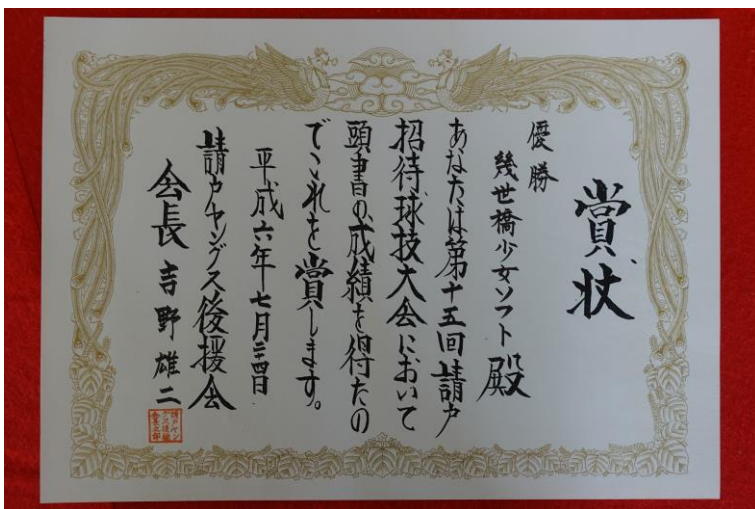 賞状
優勝
幾世橋少女ソフト殿
あなたは第十五回請戸
招待球技大会において
頭書の成績を得たの
でこれを賞します。
平成六年七月二十四日
請戸ヤングス後援会
会長 吉野雄二